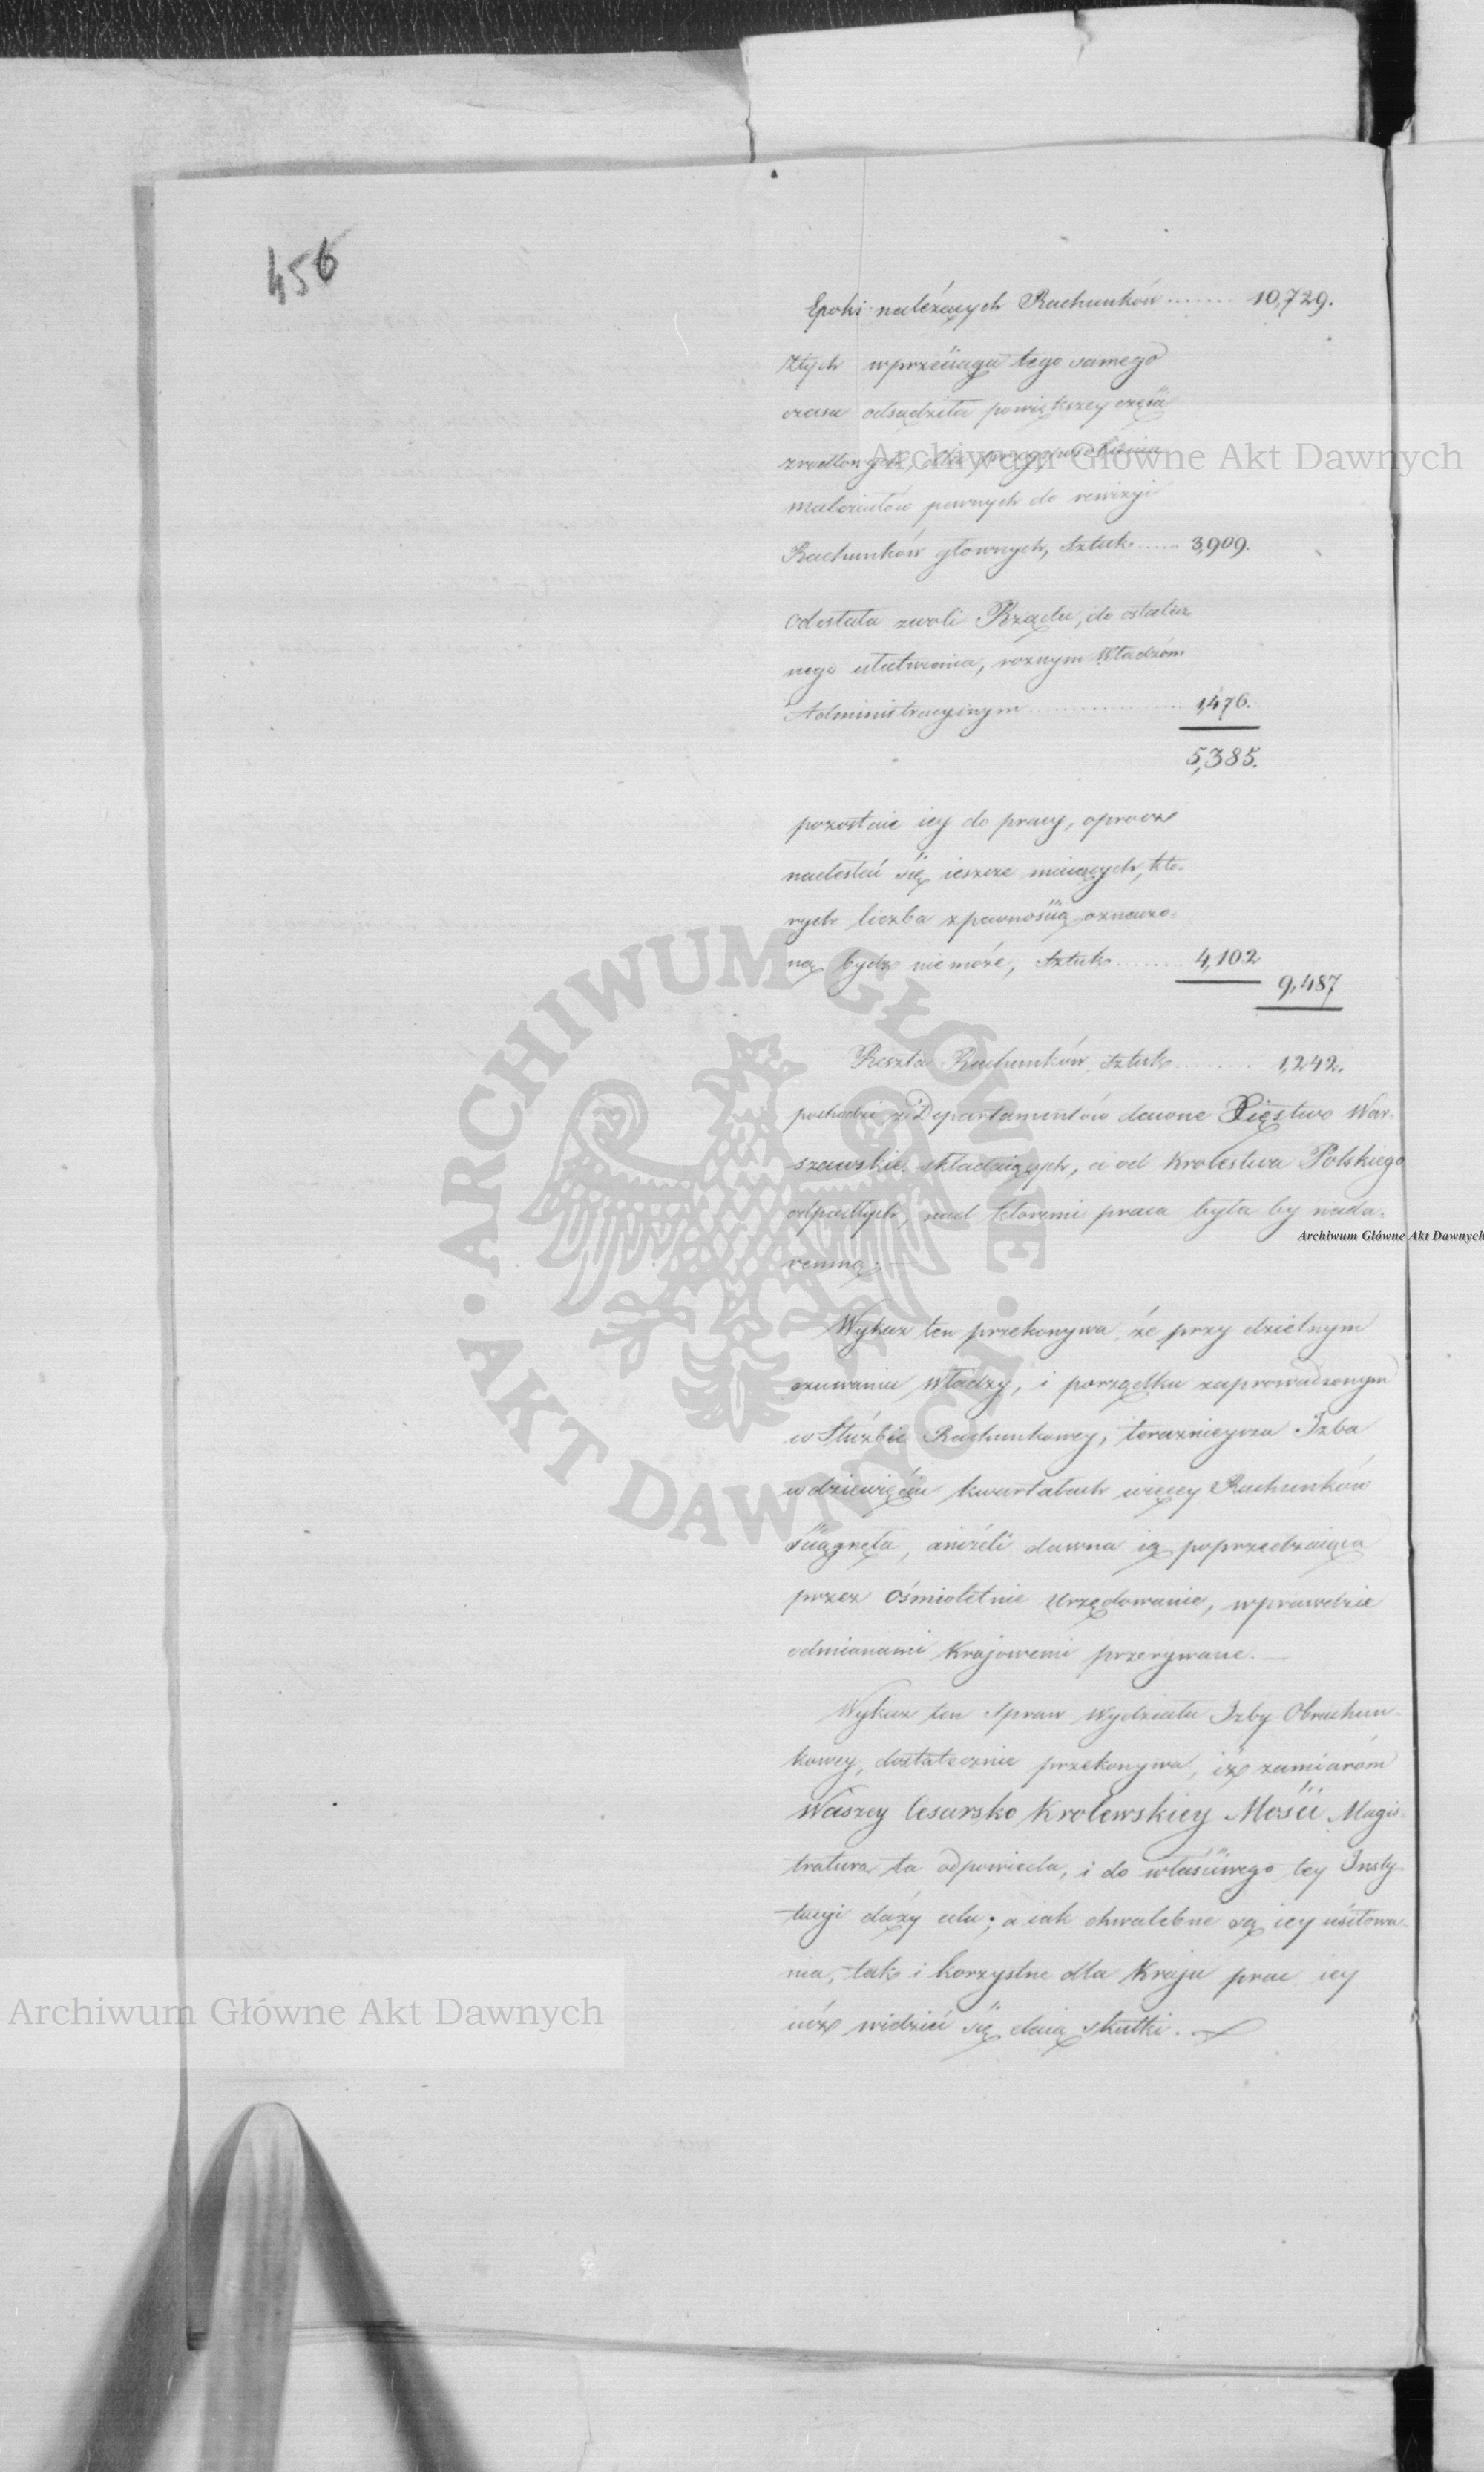 456
Epoki należących Rachunków ....... 10,729.
Ztych wprzeciągu tego samego
czasu odsądziła powiększey części
zrodłowych, dla przysposobienia
materiałów pewnych do rewizyi
Rachunków głownych, Sztuk ...... 3,909.
odesłała zwoli Rządu, do ostatecz
nego ułatwienia, rożnym Władzom
Administracyinym .................. 1,476.
5,385.
pozostaie iey do pracy, oprocz
nadesłać się ieszcze maiących, kto-
rych liczba zpewnością oznaczo-
ną bydź niemoże, Sztuk ........ 4,102
9,487
Reszta Rachunków Sztuk ......... 1,242.
pochodzi z Departamentów dawne Xięstwo War-
szawskie składaiących, a od Krolestwa Polskiego
odpadłych, nad ktoremi praca była by nada-
remną. —
Wykaz ten przekonywa, że przy dzielnym
czuwaniu władzy, i porządku zaprowadzonym
w Służbie Rachunkowey, terazniejsza Izba
w dziewięciu kwartałach więcey Rachunków
ściągnęła, aniżeli dawna ią poprzedzaiąca
przez ośmioletnie Urzędowanie, wprawdzie
odmianami Krajowemi przerywane. —
Wykaz ten Spraw Wydziału Izby Obrachun-
kowey, dostatecznie przekonywa, iż zamiarom
Waszey Cesarsko Krolewskiey Mości Magis-
tratura ta odpowiada, i do właściwego tey Insty-
tucyi dąży celu; a iak chwalebne są iey usiłowa-
nia, tak i korzystne dla Kraju prac iey
iuż widzieć się daią skutki.
Archiwum Główne Akt Dawnych
Archiwum Główne Akt Dawnych
Archiwum Główne Akt Dawnych
ARCHIWUM GŁÓWNE
AKT DAWNYCH